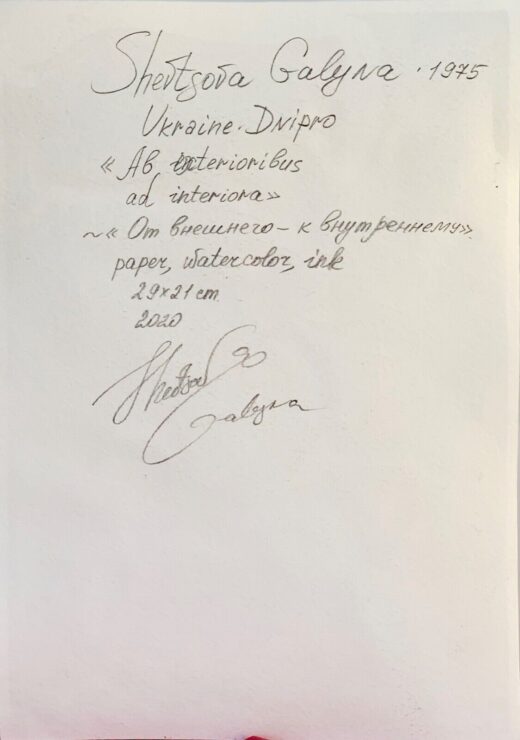 Shevtsova Galyna · 1975
Ukraine. Dnipro
« Ab exterioribus
ad interiora»
~« От внешнего – к внутреннему»
paper, watercolor, ink
29×21 cm
2020
Galyna